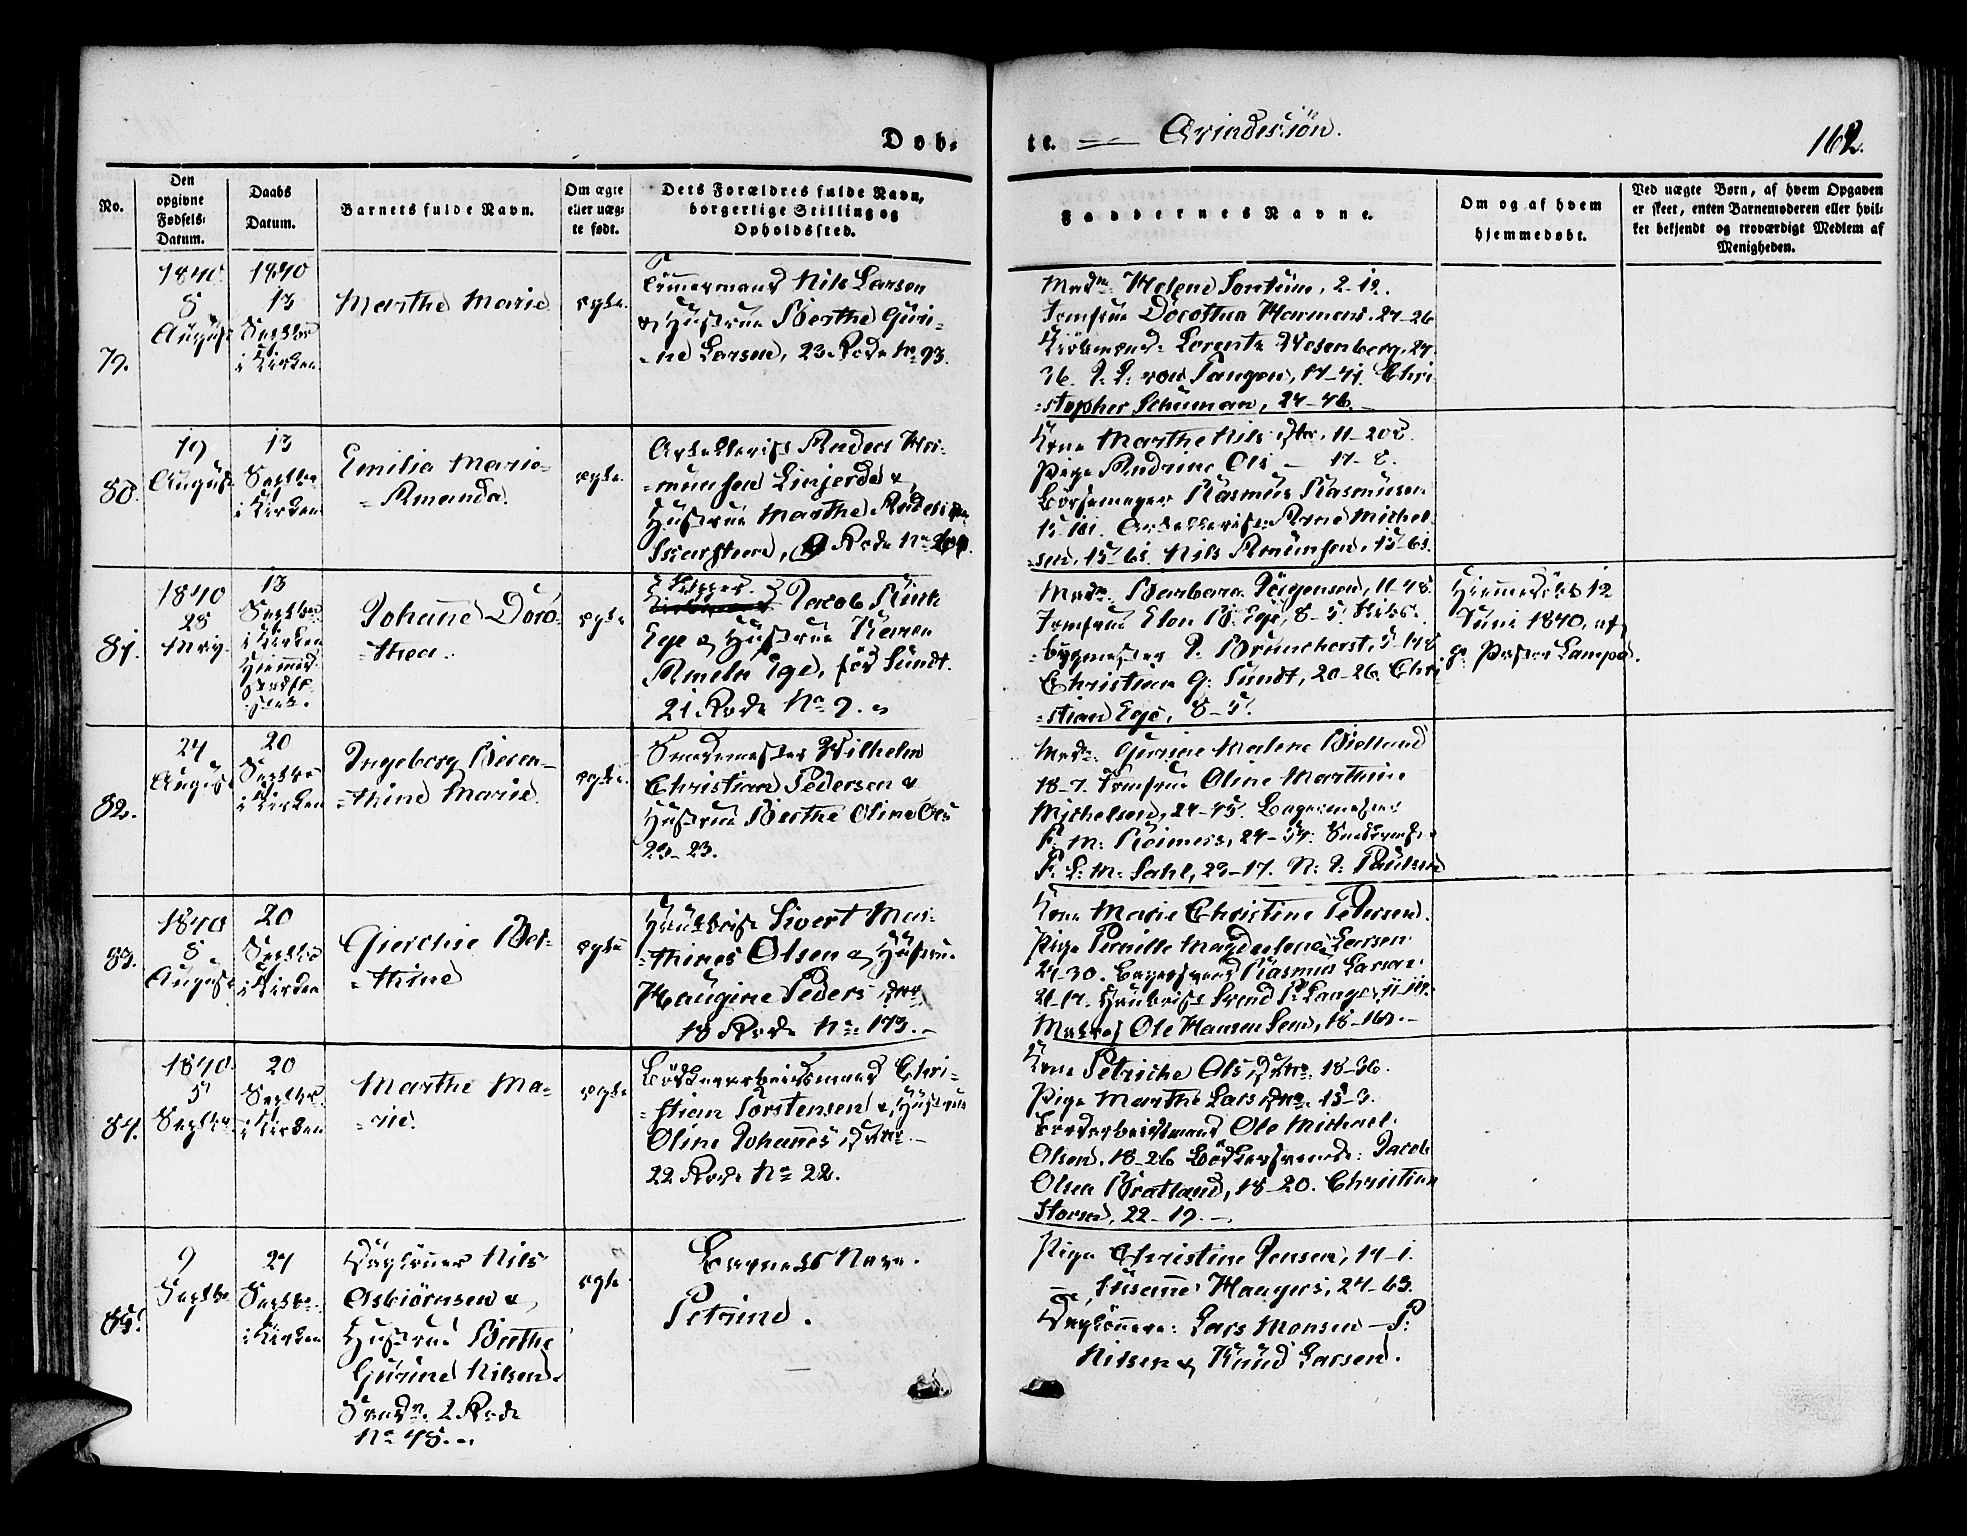 Døb-
te. Qvindekiön. 162.
No.
Den opgivne Fødsels-Datum.
Daabs Datum.
Barnets fulde Navn.
Om ægte eller uæg-te født.
Dets Forældres fulde Navn, borgerlige Stilling og Opholdssted.
Faddernes Navne.
Om og af hvem hjemmedøbt.
Ved uægte Børn, af hvem Opgaven er skeet, enten Barnemoderen eller hvil-ket bekjendt og troværdigt Medlem af Menigheden.
79.
1840
5
August
1840
13
Septbr
i Kirken
Marthe Marie
ægte.
Tömmermand Nils Larsen
& Hustrue Berthe Guri-
ne Larsen, 23 Rode No 93.
Madm: Helene Sontum, 2-12.
Jomfrue Dorothea Harmens, 24-26
Kiöbmænd: Lorentz Wesenberg, 24-
36. P. P. von Tangen, 17-41. Chri-
stopher Schuman, 24-46.
80.
19
August
13
Septbr
i Kirken
Emilia Marie
Amanda.
ægte.
Artillerist Anders
Linjerde &
Hustrue Marthe
Rode No
Kone Marthe Nils Dtr, 11-202.
Pige Andrine Ols - 17-8.
Börsemager Rasmus Rasmusen
15-101. Artillerister Arne Michel-
sen, 15-61. Nils Amunsen, 15-61.
81.
1840
25
May
13
Septbr
i Kirken
Hiemme
Johanne Doro-
thea.
ægte
Skipper
Jacob Kink
Ege & Hustrue Karen
Amelia Ege, föd Sundt.
21 Rode No 9.
Madm: Barbara Jörgensen, 11-48.
Jomfrue Elen B. Ege, 8-5. Skibs-
bygmester P. Brunchorst, 5-148
Christian G: Sundt, 20-26. Chri-
stian Ege, 8-5.
Hiemmedöbt 12
Juni 1840, af
Hr. Pastor Lampe.
82.
24
August
20
Septbr
i Kirken
Ingeborg Beren-
thine Marie.
ægte.
Smedemester Wilhelm
Christian Pedersen &
Hustrue Berthe Oline Ols
23-23.
Madm: Gurine Malene Bielland
18-7. Jomfrue Oline Marthine
Michelsen, 24-45. Bagermester
F. M. Reimers, 24-54.
P. L. M. Sahl, 23-17. N: P. Paulsen
83.
1840
5
August
20
Septbr
i Kirken
Gierchie Ber-
thine
ægte
Hautboist Sivert Mar-
thines Olsen & Hustrue
Haugine Peders Dtr
18 Rode No: 173.
Kone Marie Christine Petersen.
Pige Pernille Magdelena Larsen
24-30. Bagersvend Rasmus Larsen
21-17. Haubist Svend P. Lange, 11-
Matros Ole Hansen Sem, 18-161.
84.
1840
5
Septbr
20
Septbr
i Kirken
Marthe Ma-
rie.
ægte
Bödkerarbeidsmand Chri-
stian Torstensen & Hustrue
Oline Johannes Dtr.
22 Rode No 22.
Kone Petriche Ols Dtr. 18-36.
Pige Marthe Lars Dtr. 15-3.
Ole Michael
Olsen, 18-26 Bödkersvende: Jacob
Olsen Bratland, 18-20. Christian
Storsen, 22-19.
85.
9
Septbr
27
Septbr
i Kirken
Daglönner Nils
Asbiörnsen &
Hustrue Berthe
Gurine Nilsen.
2 Rode
No 45.
ægte
Barnets Navn.
Petrine.
Pige Christine Jensen, 14-1.
Susanne Haagers, 24-63.
Daglönnere: Lars Monsen - P:
Nilsen & Knud Larsen.